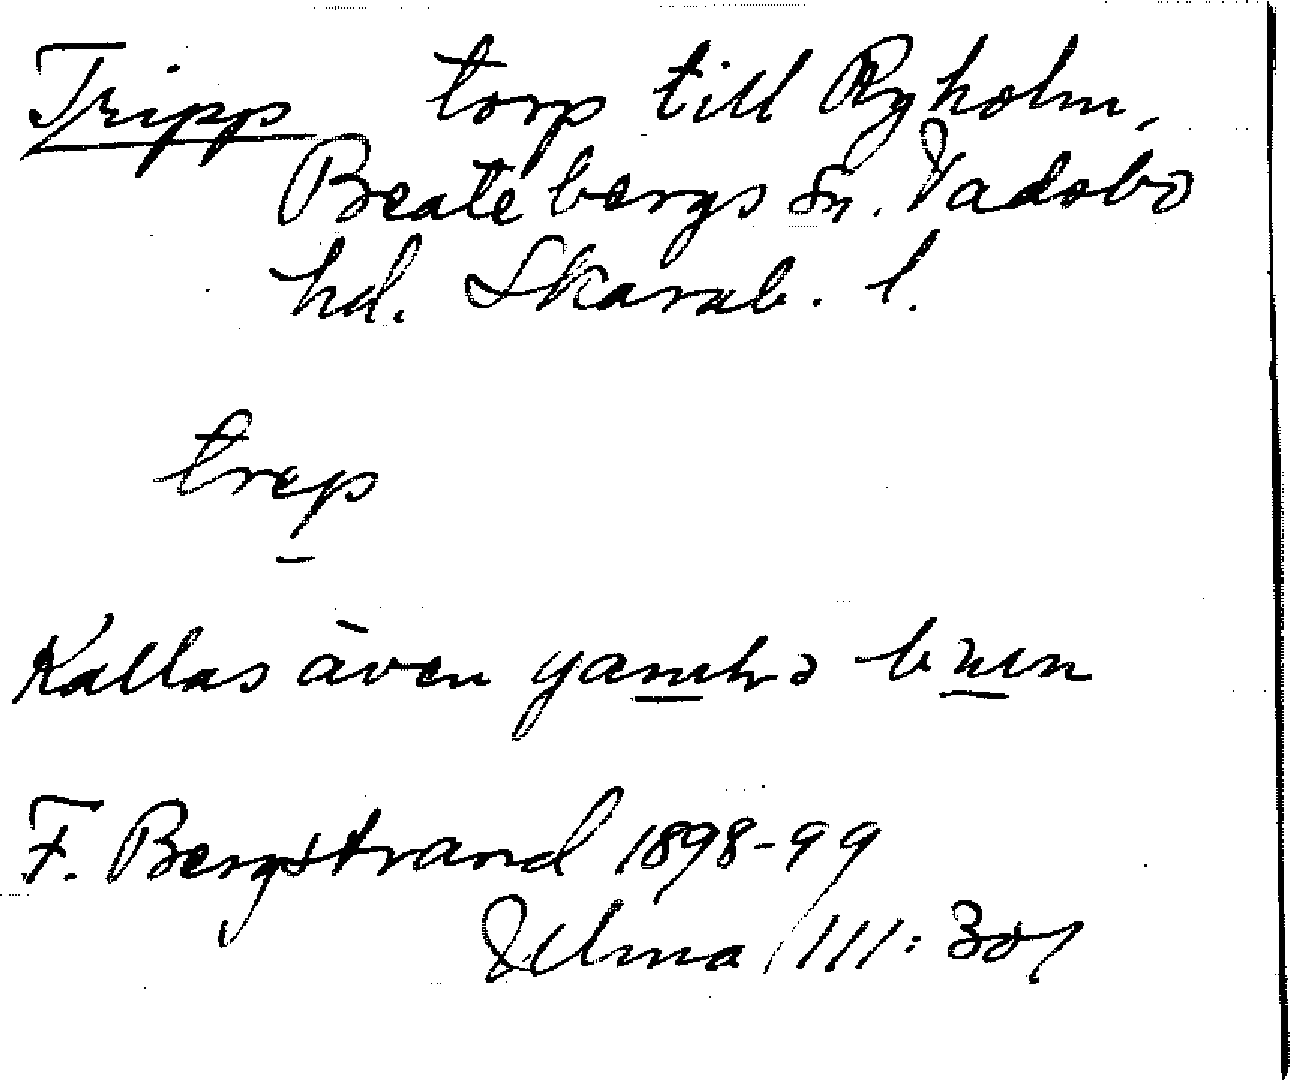 Tripp torp till Ryholm,
Beatebergs sn. Vadsbo
hd. Skarab. l.
trep
Kallas även
F. Bergstrand 1898-99
111:301